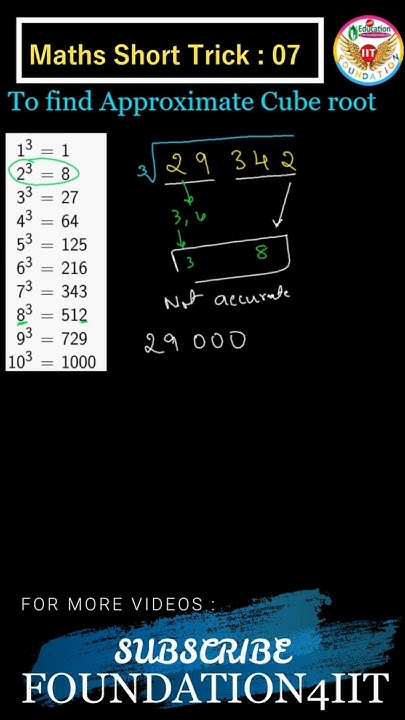 Maths Short Trick : 07
Education
IIT
FOUNDATION
To find Approximate Cube root
1³ = 1
2³ = 8
3³ = 27
4³ = 64
5³ = 125
6³ = 216
7³ = 343
8³ = 512
9³ = 729
10³ = 1000
∛29 342
3,
3 8
Not accurate
29 000
FOR MORE VIDEOS :
SUBSCRIBE
FOUNDATION4IIT